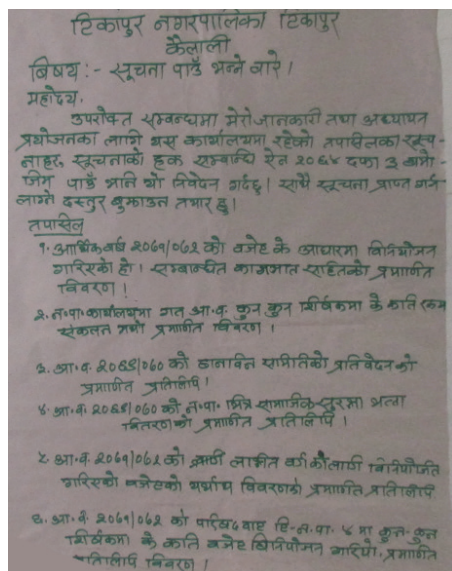 टिकापुर नगरपालिका टिकापुर
कैलाली
बिषय :- सूचना पाउँ भन्ने बारे ।
महोदय,
उपरोक्त सम्बन्धमा मेरो जानकारी तथा अध्यापन
प्रयोजनका लागि यस कार्यालयमा रहेको तपासिलका सूच-
नाहरु, सूचनाको हक सम्बन्धि ऐन २०६४ दफा ३ बमो-
जिम पाउँ भनि यो निवेदन गर्दछु । साथै सूचना प्राप्त गर्न
लाग्ने दस्तुर बुझाउन तयार छु ।
तपासिल
१. आर्थिक बर्ष २०७१/०७२ को बजेट के आधारमा बिनियोजन
गरिएको हो । सम्बन्धित कागजात सहितको प्रमाणित
बिवरण ।
२. न.पा. कार्यालयमा गत आ.व. कुन कुन शिर्षकमा के कति रकम
संकलन भयो प्रमाणित बिवरण ।
३. आ.व. को प्रतिवेदनको
प्रमाणीत प्रतिलिपि ।
४. आ.व. को न.पा. भित्र सामाजिक सुरक्षा भत्ता
बितरणको प्रमाणित प्रतिलिपि ।
५. आ.व. २०७१/०७२ को लक्षित बर्गको लागि बिनियोजित
गरिएको बजेटको यथार्थ बिवरणको प्रमाणीत प्रतिलिपि
६. आ.व. २०७१/०७२ को टि.न.पा. ४ मा कुन-कुन
शिर्षकमा के कति बजेट बिनियोजन गरियो, प्रमाणित
प्रतिलिपि बिवरण ।